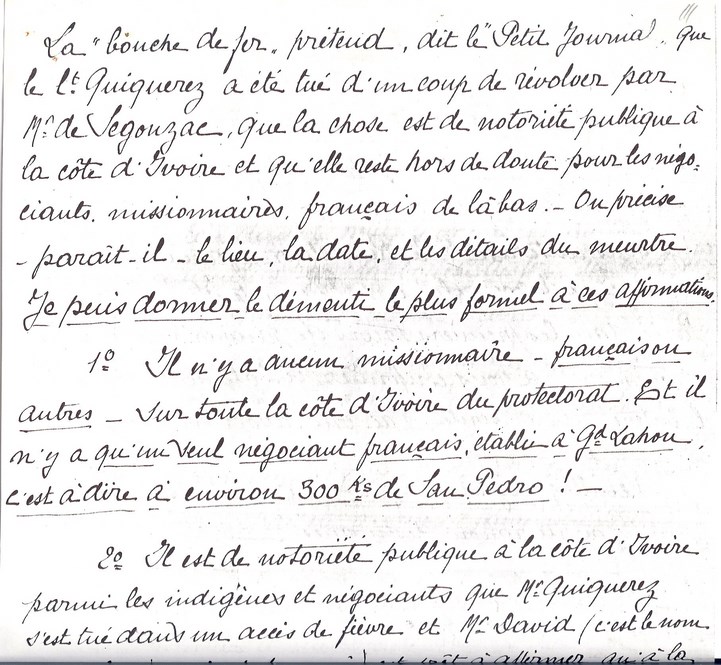 La "bouche de fer" prétend, dit le "Petit Journal" que
le Lt. Quiquerez a été tué d'un coup de révolver par
Mr. de Segonzac, que la chose est de notoriété publique à
la côte d'Ivoire et qu'elle reste hors de doute pour les négo-
ciants, missionnaires, français de là bas. - On précise
- paraît-il - le lieu, la date, et les détails du meurtre.
Je puis donner le démenti le plus formel à ces affirmations.
1º Il n'y a aucun missionnaire - français ou
autres - sur toute la côte d'Ivoire du protectorat. Et il
n'y a qu'un seul négociant français, établi à Gd Lahou,
c'est à dire à environ 300 Ks de San Pedro ! -
2º Il est de notoriété publique à la côte d'Ivoire
parmi les indigènes et négociants que Mr Quiquerez
s'est tué dans un accès de fièvre et Mr David (c'est le nom
affirmer qu'à la